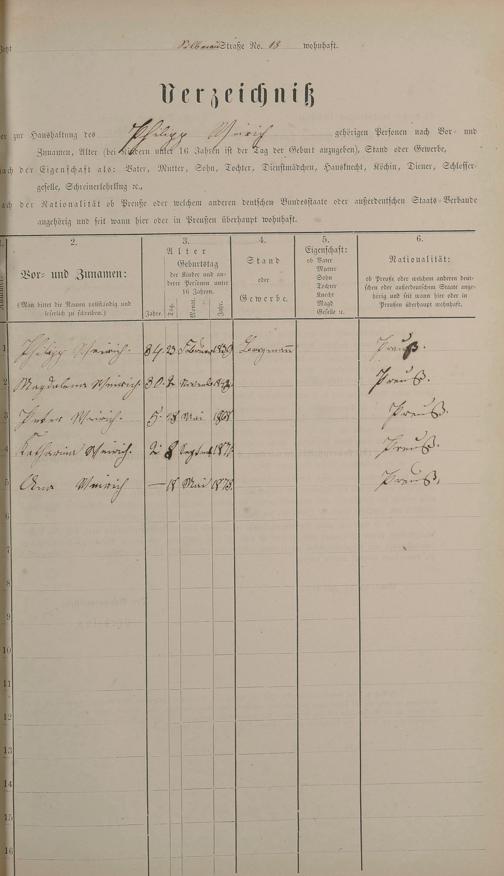 Straße No. 18 wohnhaft.
Verzeichniß
zur Haushaltung des Philipp Weirich gehörigen Personen nach Vor- und
Zunamen, Alter (bei Kindern unter 16 Jahren ist der Tag der Geburt anzugeben), Stand oder Gewerbe,
nach der Eigenschaft als: Vater, Mutter, Sohn, Tochter, Dienstmädchen, Hausknecht, Köchin, Diener, Schlosser-
geselle, Schreinerlehrling ꝛc.,
nach der Nationalität ob Preuße oder welchem anderen deutschen Bundesstaate oder außerdeutschen Staats-Verbande
angehörig und seit wann hier oder in Preußen überhaupt wohnhaft.
2. 3. 4. 5. 6.
Vor- und Zunamen:
(Man bittet die Namen vollständig und
leserlich zu schreiben.)
Alter
Geburtstag
der Kinder und an-
derer Personen unter
16 Jahren.
Jahre. Tag. Monat. Jahr.
Stand
oder
Gewerbe.
Eigenschaft:
ob Vater
Mutter
Sohn
Tochter
Knecht
Magd
Geselle ꝛc.
Nationalität:
ob Preuße oder welchem anderen deut-
schen oder außerdeutschen Staate ange-
hörig und seit wann hier oder in
Preußen überhaupt wohnhaft.
1 Philipp Weirich. 34. 23 Februar 1839 Bergmann Preuß.
2 Magdalena Weirich 30. 2 Preuß.
3 Peter Weirich. 5. 28 Mai 1868 Preuß.
4 Katharina Weirich. 2 8 Septemb 1871. Preuß.
5 Ana Weirich — 18 Mai 1873. Preuß.
6
7
8
9
10
11
12
13
14
15
16